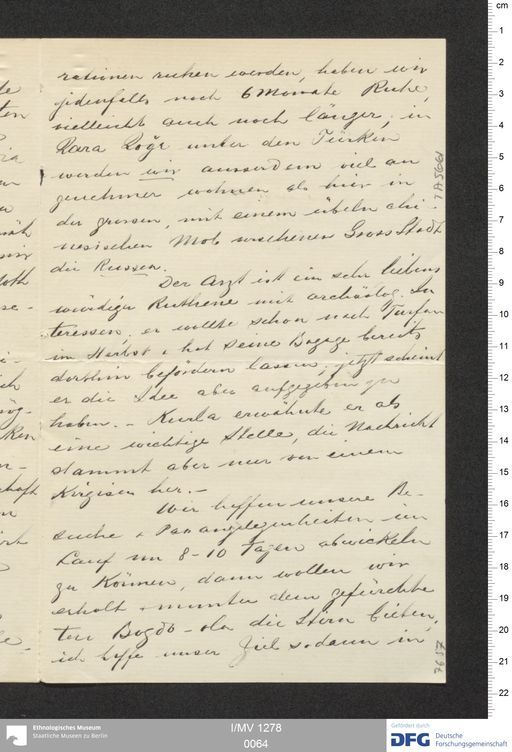 rationen ruhen werden, haben wir
jedenfalls noch 6 Monate Ruhe,
vielleicht auch noch länger; in
Kara Xoǧa unter den Türken
werden wir ausserdem viel an
genehmer wohnen als hier in
der grossen, mit einem übeln chi-
nesischen Mob versehenen Gross Stadt
die Russen.
Der Arzt ist ein sehr liebens
würdiger Ruthene mit archäolog. In
teressen; er wollte schon nach Turfan
im Herbst + hat seine Bagage bereits
dorthin befördern lassen; jetzt scheint
er die Idee aber aufgegeben zu
haben. – Kurla erwähnte er als
eine wichtige Stelle, die Nachricht
stammt aber nur von einem
Kirgisen her. –
Wir hoffen unsere Be-
suche + Passangelegenheiten im
Lauf von 8–10 Tagen abwickeln
zu können, dann wollen wir
erholt + munter dem gefürchte
ten Bogdo-ola die Stirn bieten,
ich hoffe unser Ziel sodann in
TA 5661
7657
cm
1
2
3
4
5
6
7
8
9
10
11
12
13
14
15
16
17
18
19
20
21
22
Ethnologisches Museum
Staatliche Museen zu Berlin
I/MV 1278
0064
Gefördert durch
DFG Deutsche
Forschungsgemeinschaft